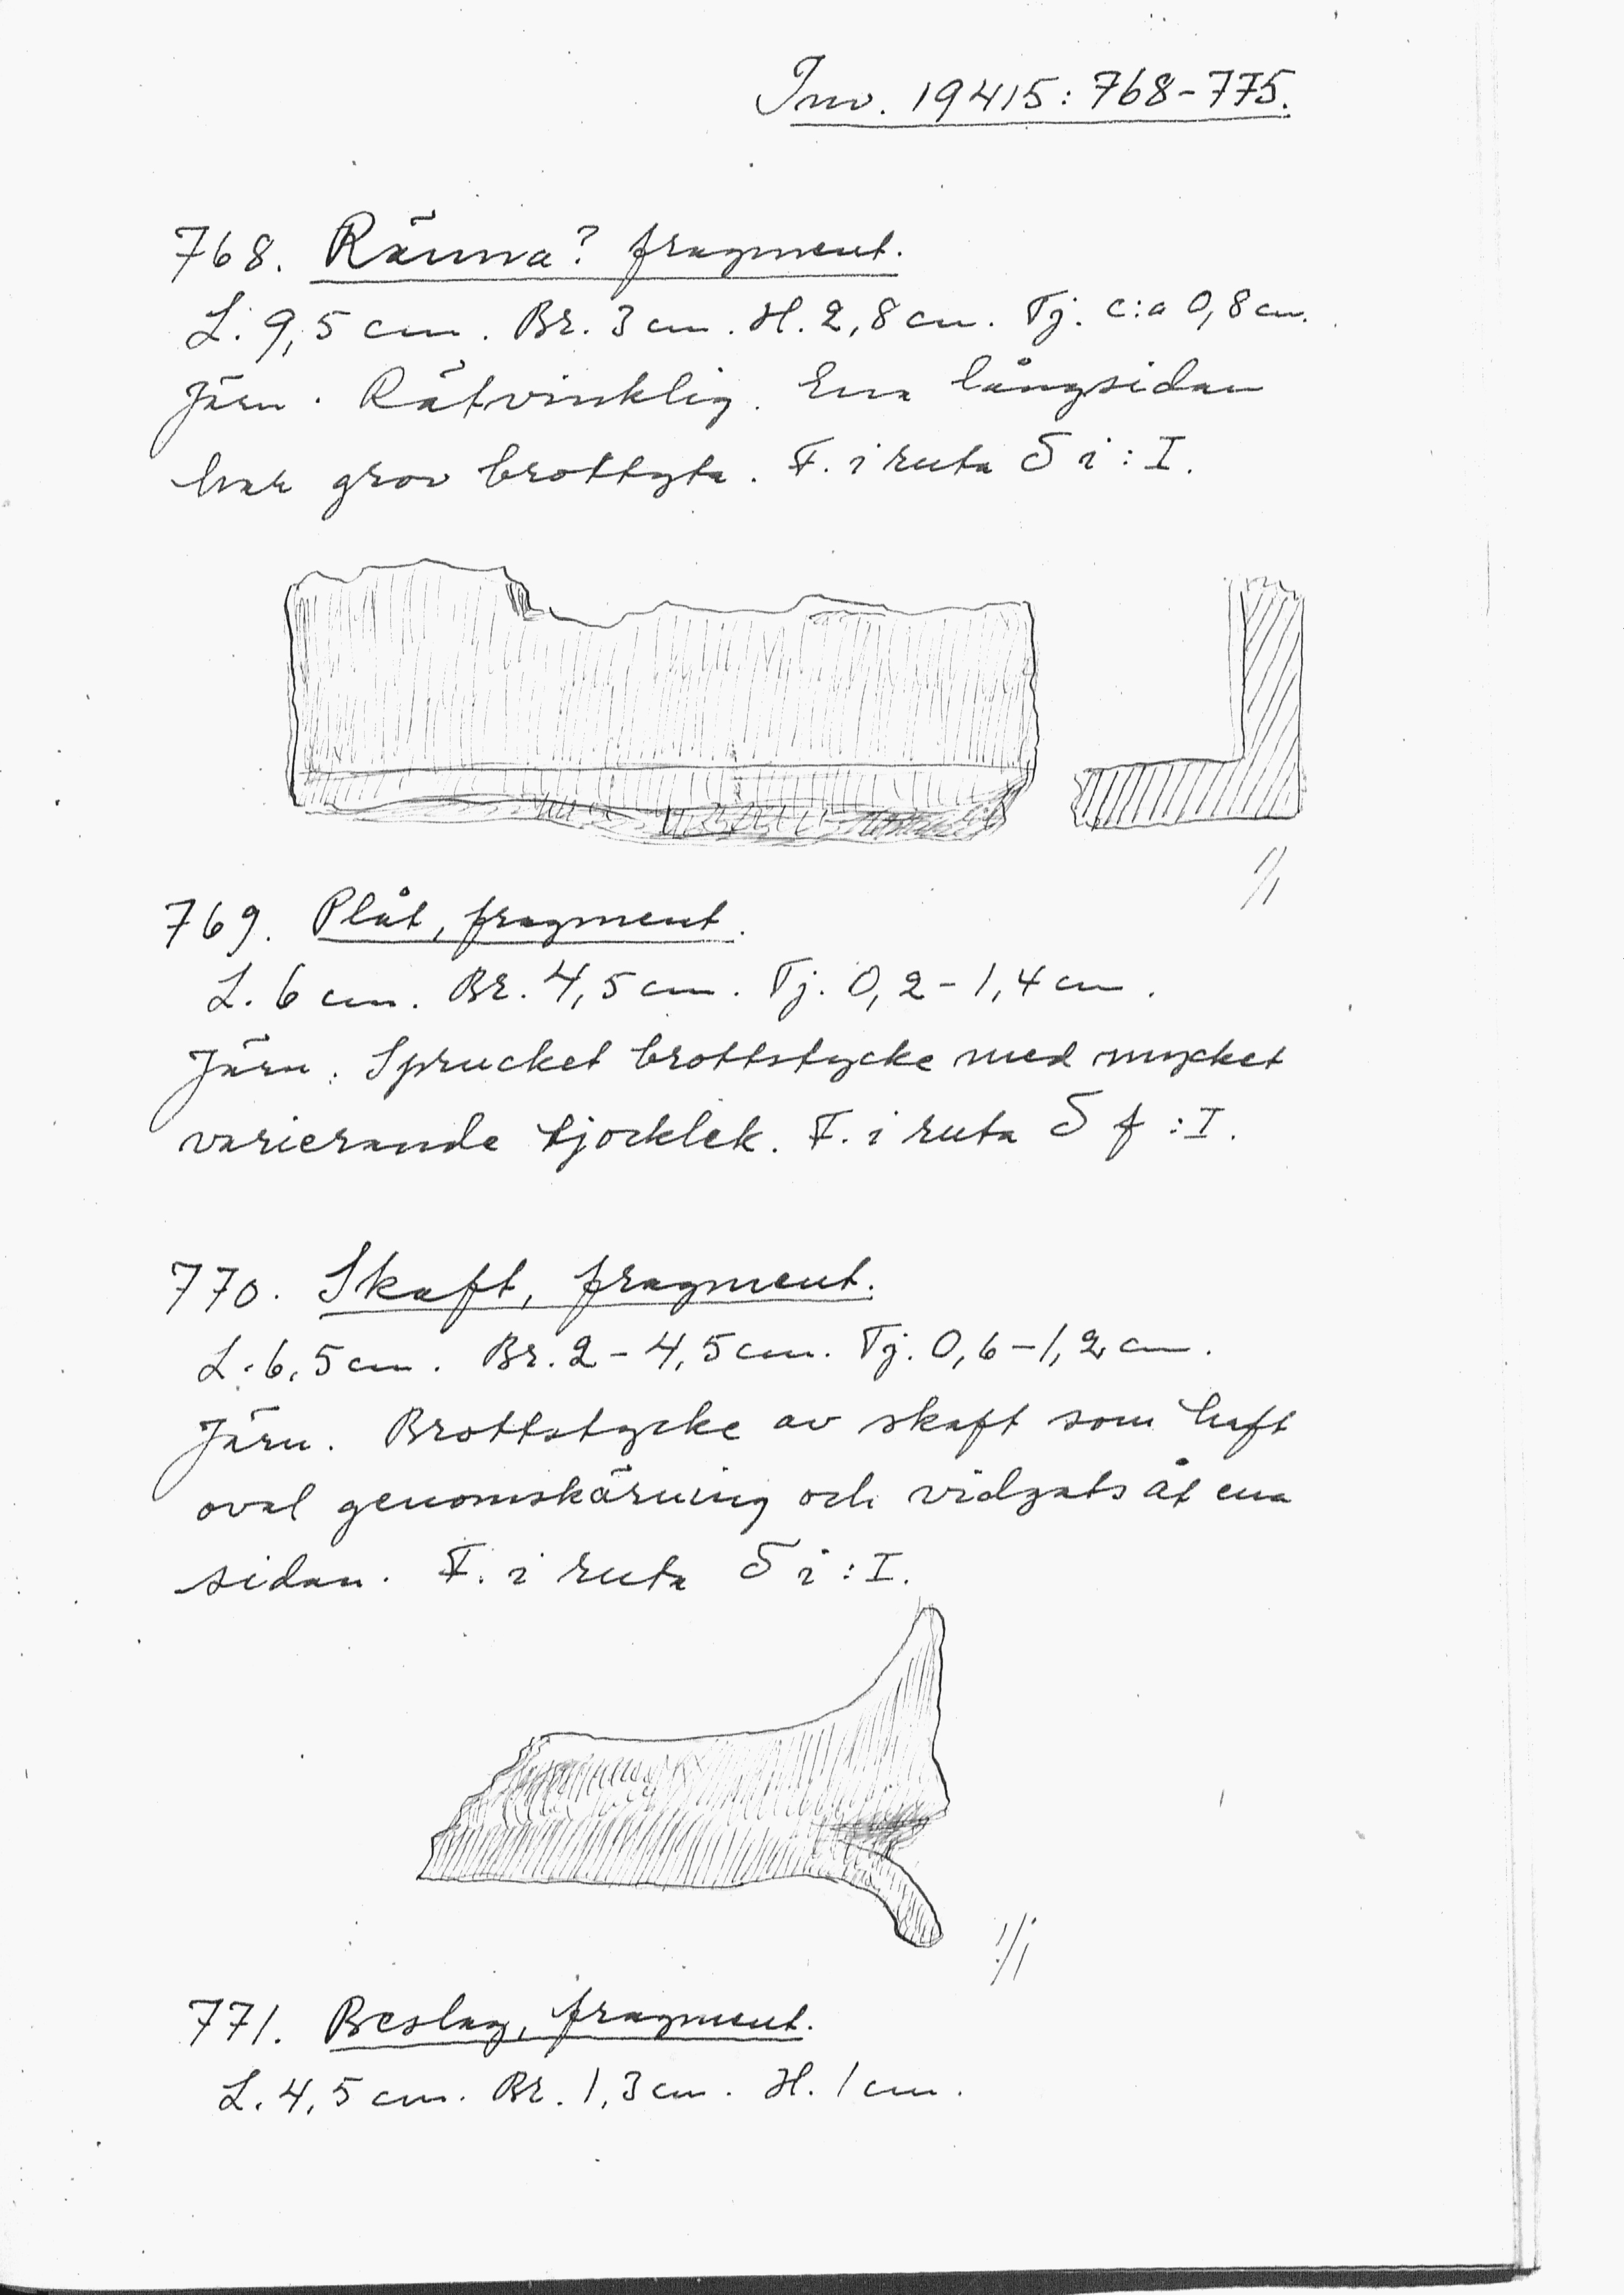 Inv. 19415: 768-775.
768. Ränna? fragment.
L. 9,5 cm. Br. 3 cm. H. 2,8 cm. Tj. c:a 0,8 cm.
Järn. Rätvinklig. Ena långsidan
har grov brottyta. F. i ruta S i : I.
1/1
769. Plåt, fragment.
L. 6 cm. Br. 4,5 cm. Tj. 0,2 - 1,4 cm.
Järn. Sprucket brottstycke med mycket
varierande tjocklek. F. i ruta S f : I.
770. Skaft, fragment.
L. 6,5 cm. Br. 2 - 4,5 cm. Tj. 0,6 - 1,2 cm.
Järn. Brottstycke av skaft som haft
oval genomskärning och vidgats åt ena
sidan. F. i ruta S i : I.
1/1
771. Beslag, fragment.
L. 4,5 cm. Br. 1,3 cm. H. 1 cm.